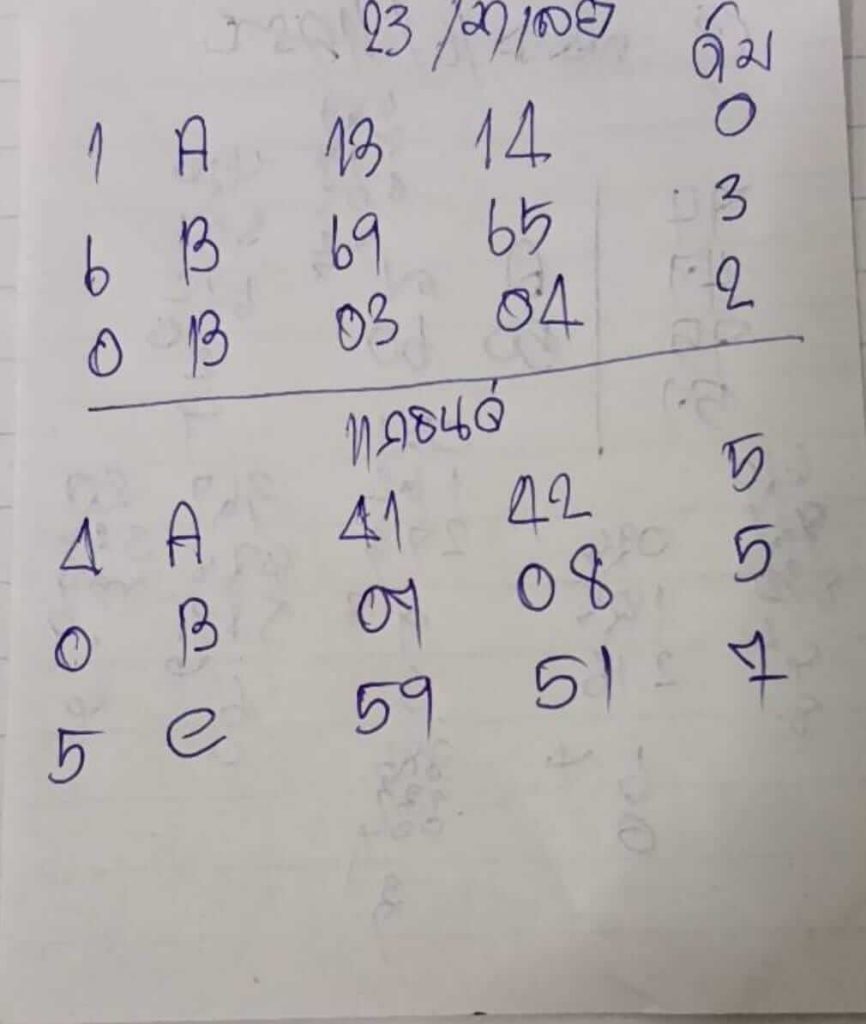 23 /มาเลย์
ดับ
1 A 13 14 0
6 B 69 65 3
0 B 03 04 2
4 A 41 42 5
0 B 07 08 5
5 e 59 51 7